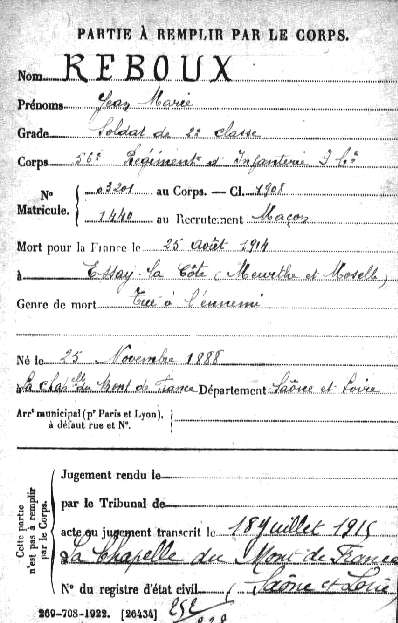 PARTIE À REMPLIR PAR LE CORPS.
Nom REBOUX
Prénoms Jean Marie
Grade Soldat de 2e classe
Corps 56e Régiment d'Infanterie
Nº Matricule. 03201 au Corps. — Cl. 1908
1440 au Recrutement Macon
Mort pour la France le 25 août 1914
à Essay la Côte (Meurthe et Moselle)
Genre de mort Tué à l'ennemi
Né le 25 Novembre 1888
La Chapelle du Mont de France Département Saône et Loire
Arrt municipal (pr Paris et Lyon), à défaut rue et Nº.
Cette partie n'est pas à remplir par le Corps.
Jugement rendu le
par le Tribunal de
acte ou jugement transcrit le 18 Juillet 1915
à La Chapelle du Mont de France
Nº du registre d'état civil (Saône et Loire)
269-708-1922. [26434] 252